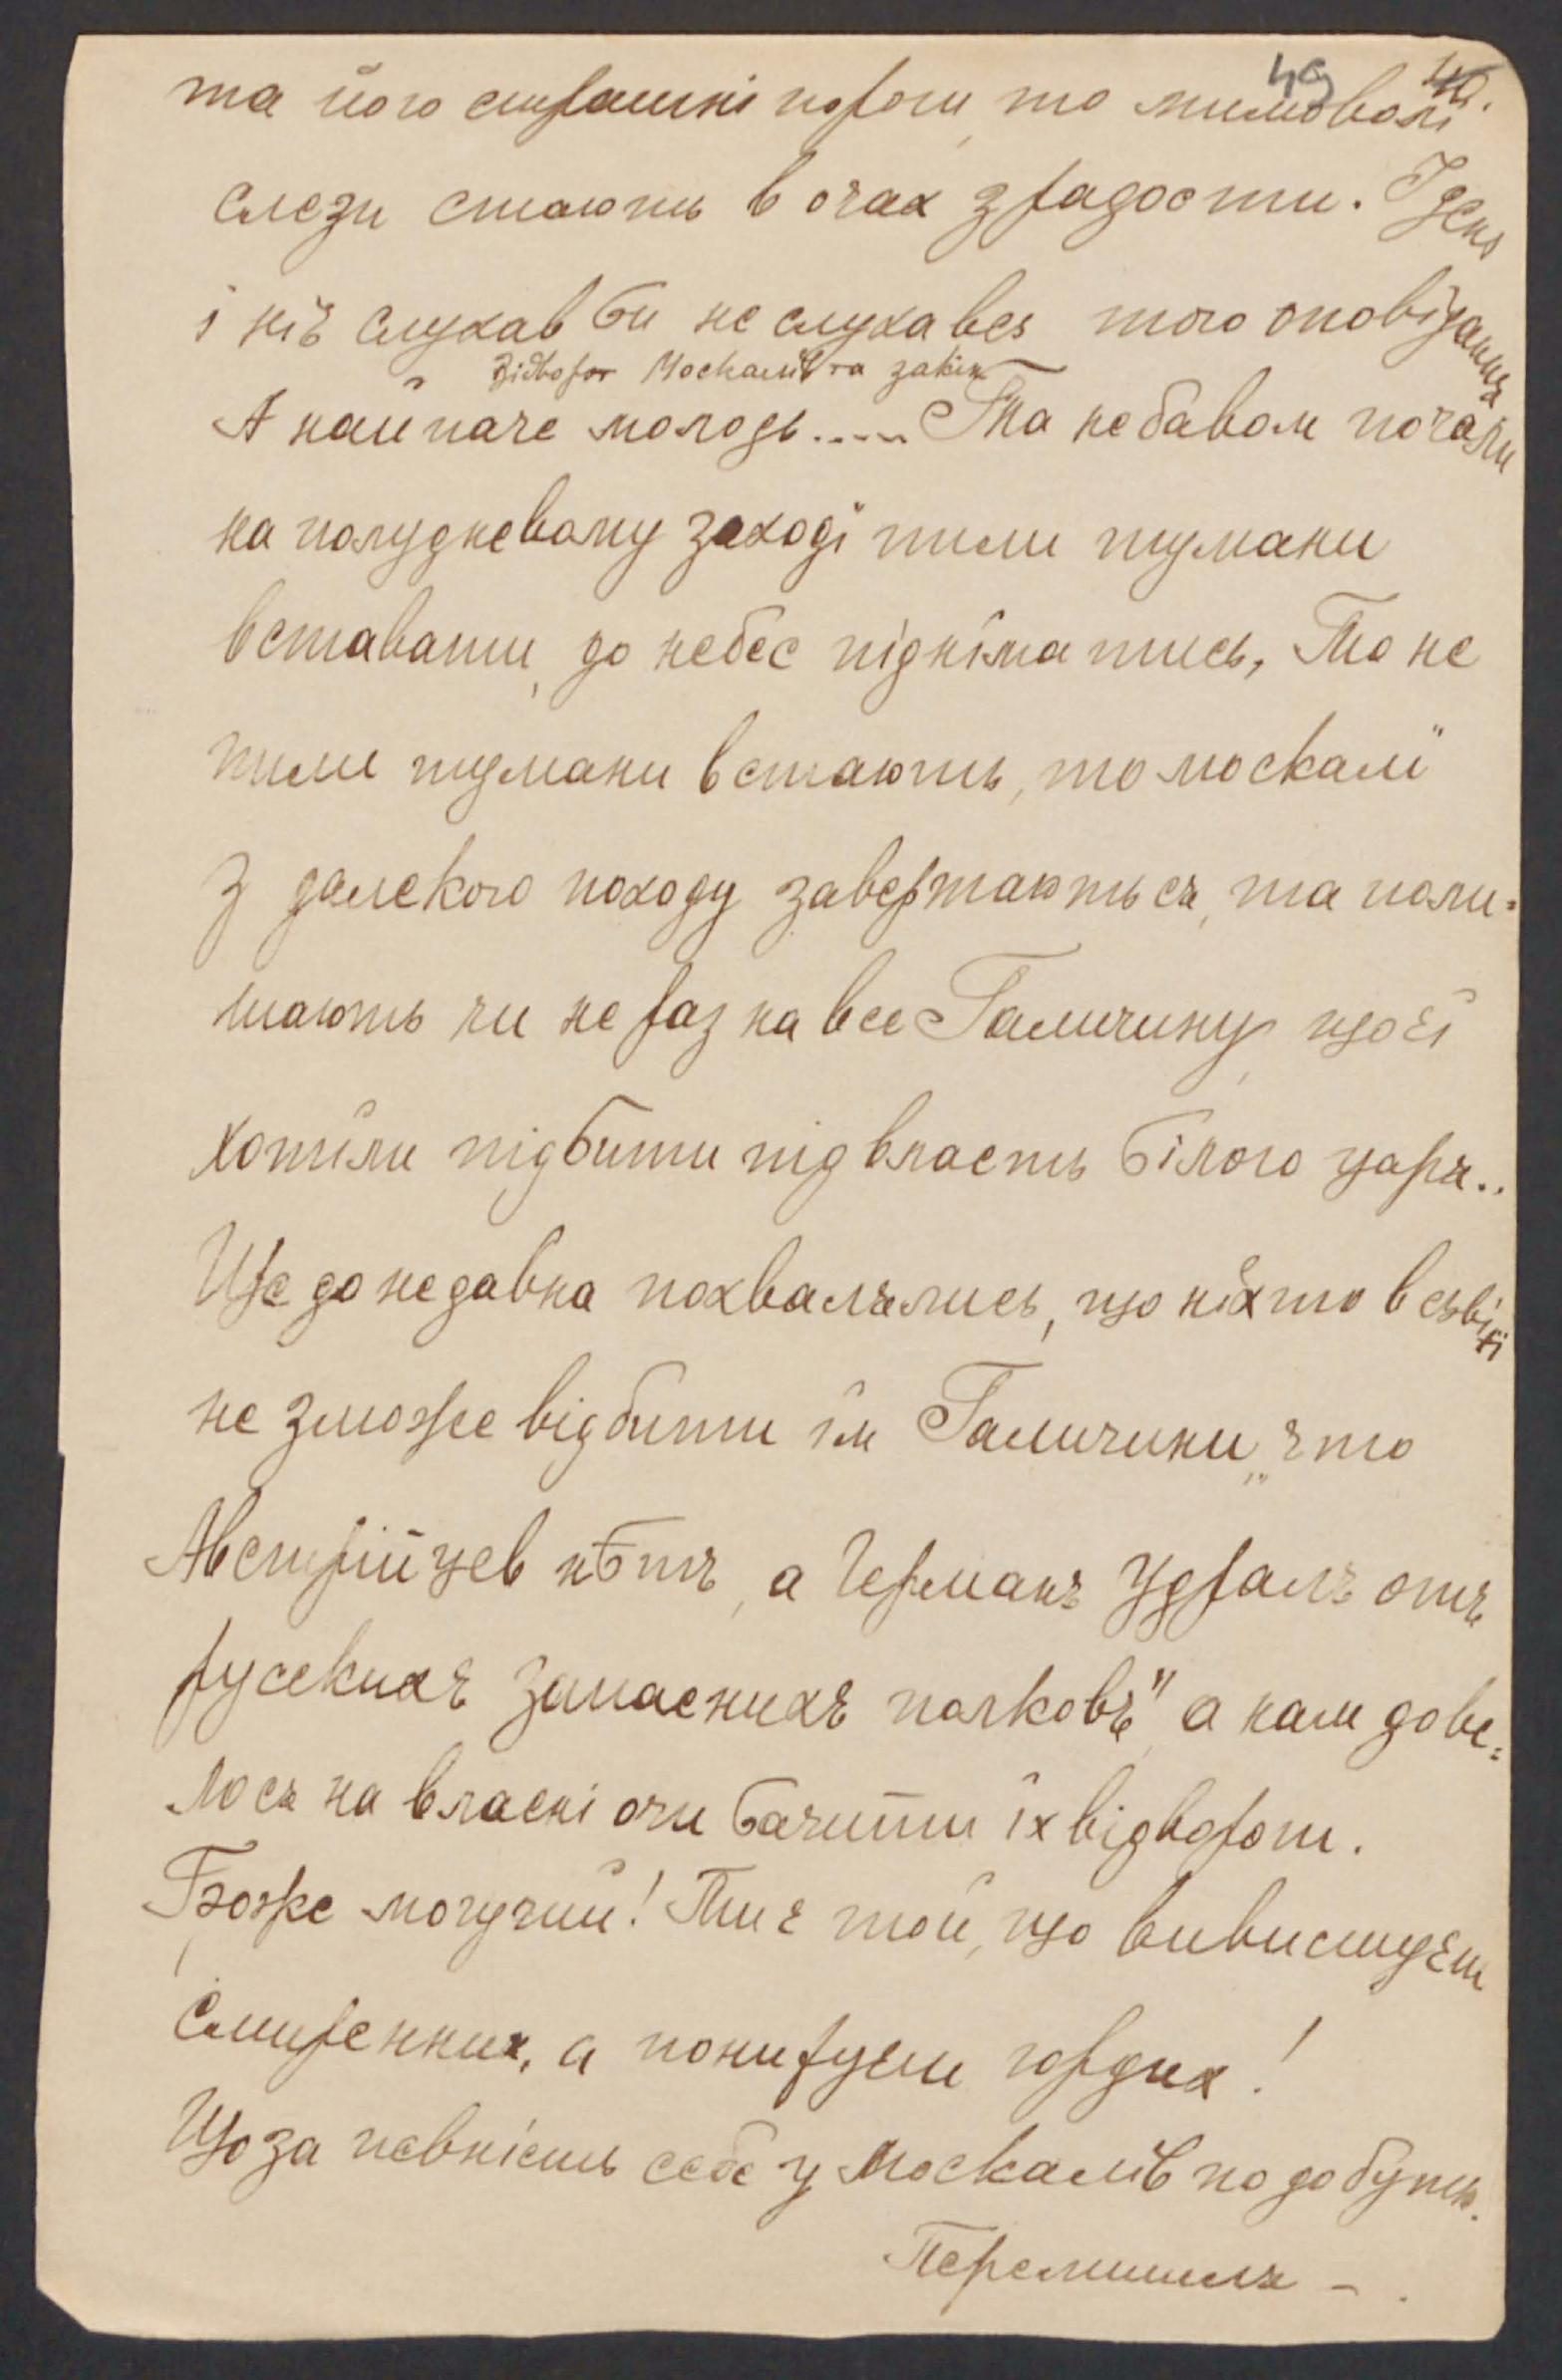 49 40.
та його страшні пороги, то мимоволі
слези стають в очах з радости. І день
і ніч слухав би не слухавсь того оповідання
Відворот Москалів та
А найпаче молодь..... Та небавом почали
на полудневому заході пили тумани
вставати, до небес підніматись, То не
пили тумани встають, то москалі
з далекого походу завертаються, та поли-
шають чи не раз на все Галичину, що єї
хотіли підбити під власть білого царя..
Ще до недавна похвалялись, що ніхто в сьвіті
не зможе відбити їм Галичини, "що
Австрійцев нѣтъ, а Германъ удралъ отъ
русскихъ запаснихъ полковъ", а нам дове-
лося на власні очи бачити їх відворот.
Боже могучий! Ти є той, що вивисшуєш
смиренних, а понируєш гордих!
Що за певність себе у москалів по добутю
Перемишля –.